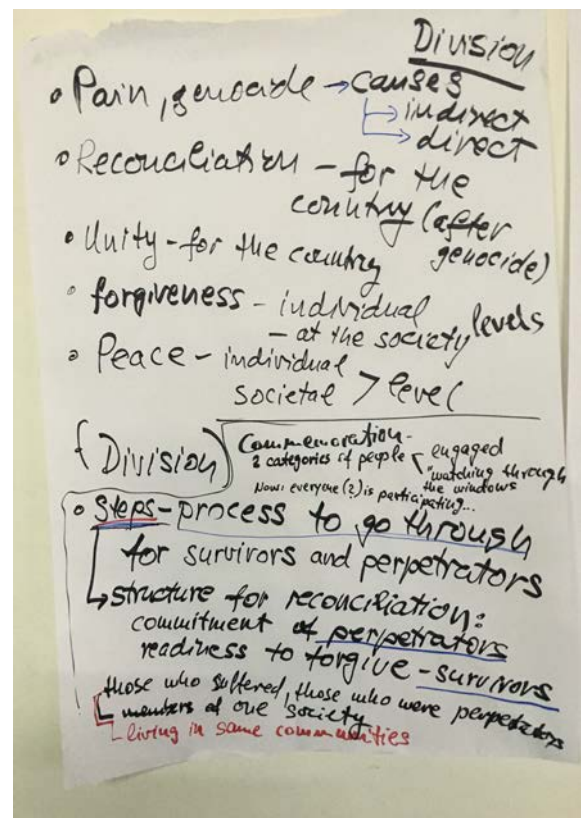 Division
• Pain, genocide → causes
→ indirect
→ direct
• Reconciliation - for the
country (after
genocide)
• Unity - for the country
• forgiveness - individual
- at the society levels
• Peace - individual
societal > level
(Division)
Commemoration -
2 categories of people < engaged
"watching through
the windows
Now: everyone (?) is participating...
• Steps - process to go through
for survivors and perpetrators
↳ structure for reconciliation:
commitment of perpetrators
readiness to forgive - survivors
those who suffered, those who were perpetrators
members of one society
living in same communities